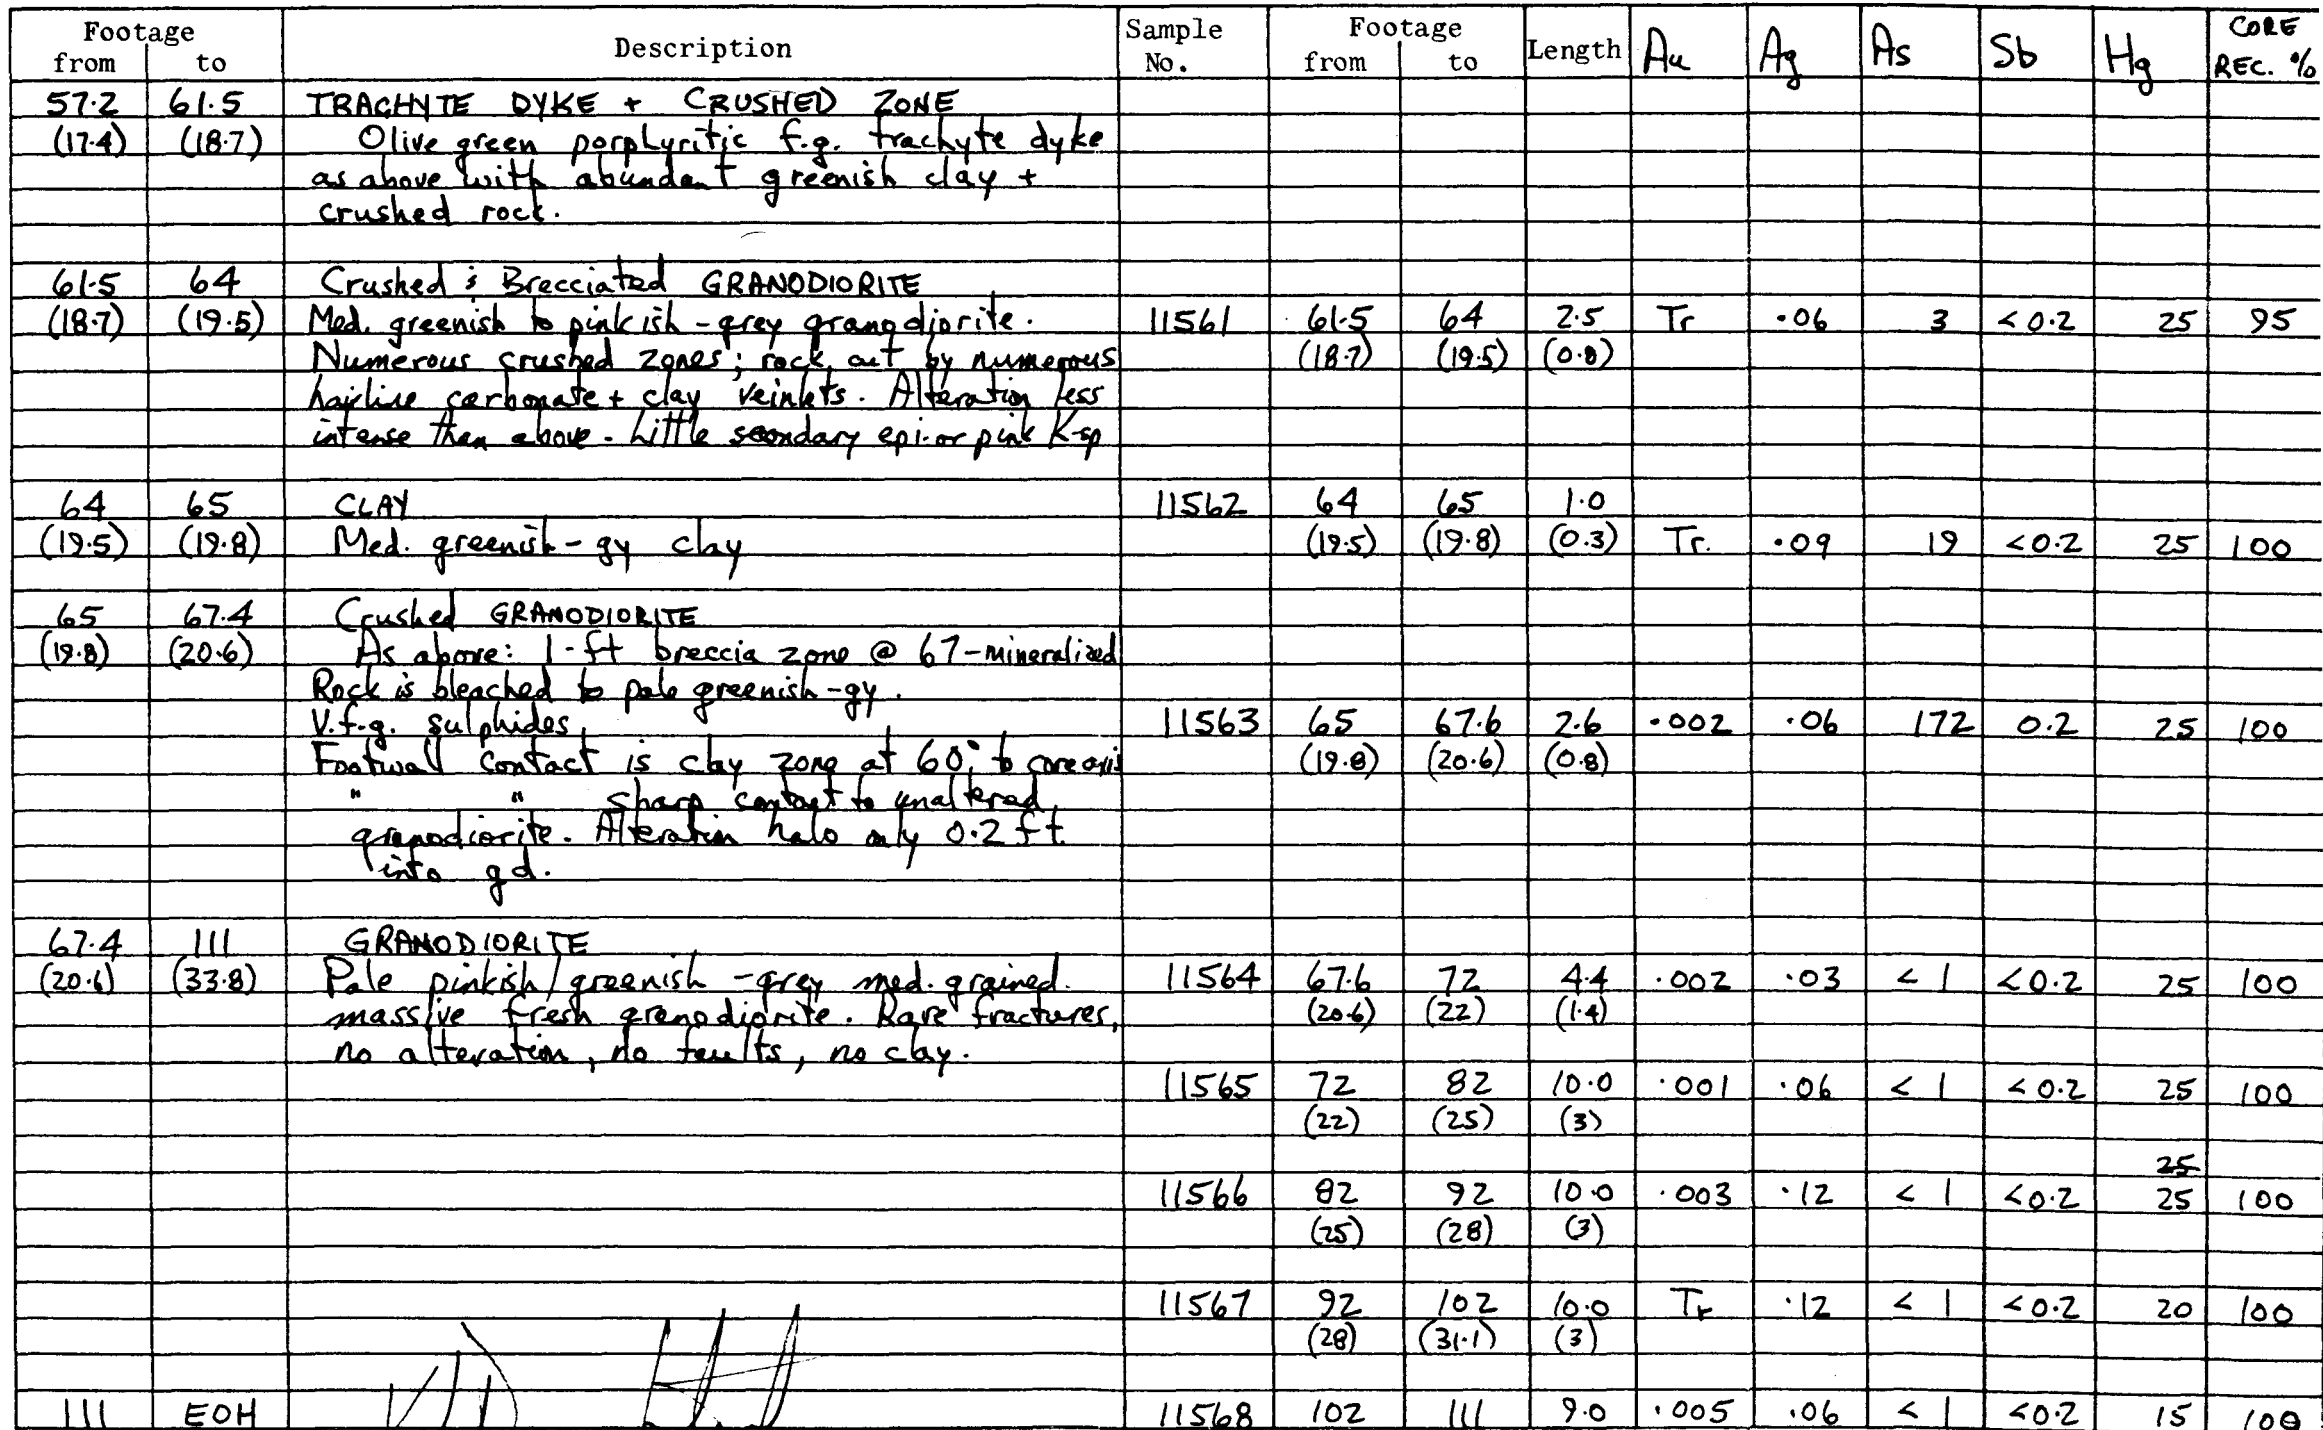 Footage Description Sample Footage Length Au Ag As Sb Hg CORE
from to No. from to REC. %
57.2 61.5 TRACHYTE DYKE + CRUSHED ZONE
(17.4) (18.7) Olive green porphyritic f.g. trachyte dyke
as above with abundant greenish clay +
crushed rock.
61.5 64 Crushed & Brecciated GRANODIORITE
(18.7) (19.5) Med. greenish to pinkish-grey granodiorite. 11561 61.5 64 2.5 Tr .06 3 <0.2 25 95
Numerous crushed zones; rock cut by numerous (18.7) (19.5) (0.8)
hairline carbonate + clay veinlets. Alteration less
intense than above. Little secondary epi. or pink K-sp
64 65 CLAY 11562 64 65 1.0
(19.5) (19.8) Med. greenish-gy clay (19.5) (19.8) (0.3) Tr. .09 19 <0.2 25 100
65 67.4 Crushed GRANODIORITE
(19.8) (20.6) As above: 1-ft breccia zone @ 67-mineralized
Rock is bleached to pale greenish-gy.
V.f.g. sulphides 11563 65 67.6 2.6 .002 .06 172 0.2 25 100
Footwall contact is clay zone at 60° to core axis (19.8) (20.6) (0.8)
" " sharp contact to unaltered
granodiorite. Alteration halo only 0.2 ft.
into gd.
67.4 111 GRANODIORITE
(20.6) (33.8) Pale pinkish/greenish-grey med. grained 11564 67.6 72 4.4 .002 .03 <1 <0.2 25 100
massive fresh granodiorite. Rare fractures, (20.6) (22) (1.4)
no alteration, no faults, no clay.
11565 72 82 10.0 .001 .06 <1 <0.2 25 100
(22) (25) (3)
25
11566 82 92 10.0 .003 .12 <1 <0.2 25 100
(25) (28) (3)
11567 92 102 10.0 Tr .12 <1 <0.2 20 100
(28) (31.1) (3)
111 EOH 11568 102 111 9.0 .005 .06 <1 <0.2 15 100